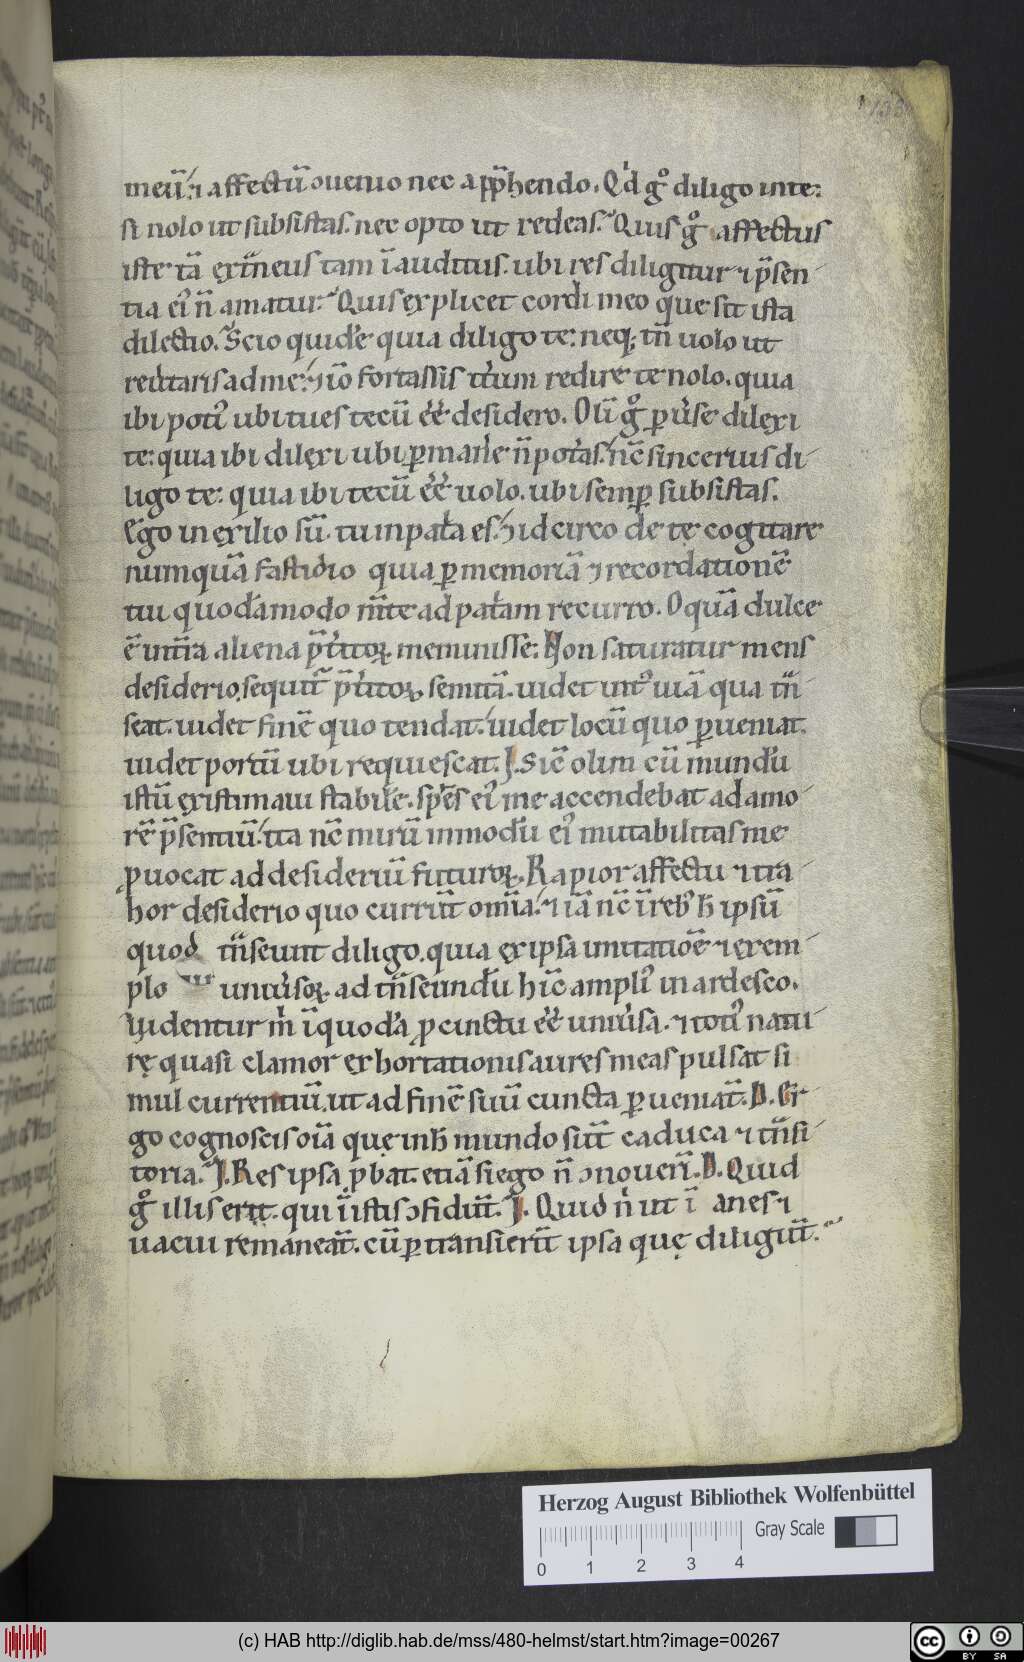 133
meū. ⁊ affectū ɔuenio nec app̄hendo. Qd́ gͦ diligo in te:
si nolo ut subsistas. nec opto ut redeas. Quis gͦ affectus
iste tā ext̄neus tam ī auditus. ubi res diligitur ⁊ p̄sen
tia eiꝰ n̄ amatur. Quis explicet cordi meo que sit ista
dilectio. Scio quidē quia diligo te: neqꝫ tn̄ uolo ut
reūtaris ad me: ⁊ iō fortassis itm̄ redire te nolo. quia
ibi potiꝰ ubi tu es tecū eē desidero. Olī gͦ ꝑūse dilexi
te: quia ibi dilexi ubi ꝑmanē n̄ pot̄as. nc̄ sincerius di
ligo te: quia ibi tecū eē uolo. ubi semꝑ subsistas.
Ego in exilio sū. tu in pat̄a es. ⁊ idcirco de te cogitare
numquā fastidio quia ꝑ memoriā ⁊ recordationē
tui quodāmodo m̄te ad pat̄am recurro. O quā dulce
ē int̄ra aliena p̄t̄itoꝝ meminisse: Non saturatur mens
desiderio. sequit̄ p̄t̄itoꝝ semitā. uidet int̄ꝰ uiā qua tn̄
seat. uidet finē quo tendat. uidet locū quo ꝑueniat.
uidet portū ubi requiescat. I. Sic̄ olim cū mundū
istū existimaui stabilē. spēs eiꝰ me accendebat ad amo
rē p̄sentiū. ita nc̄ mirū inmodū eiꝰ mutabilitas me
ꝓuocat ad desideriū futuroꝝ. Rapior affectu ⁊ tra
hor desiderio quo currūt om̄ia. ⁊ iā nc̄ ī rebꝰ h̄ ipsū
quod tn̄seunt diligo. quia ex ipsa imitatiōe ⁊ exem
plo uniūsoꝝ ad tn̄seundū hīc ampliꝰ inardesco.
Videntur m̄ īquodā ꝓcinctu eē uniūsa. ⁊ totiꝰ natu
rę quasi clamor exhortationis aures meas pulsat si
mul currentiū. ut ad finē suū cuncta ꝑueniāt. D. Er
go cognoscis oīa quę in h̄ mundo sūt caduca ⁊ tn̄si
toria. I. Res ipsa ꝓbat. etiā si ego n̄ ɔnouerī. D. Quid
gͦ illis erit. qui ī istis ɔfidūt. I. Quid n̄ ut ī anes ⁊
uacui remaneāt. cū ꝑtransierīt ipsa quę diligūt.
Herzog August Bibliothek Wolfenbüttel
Gray Scale
0 1 2 3 4
(c) HAB http://diglib.hab.de/mss/480-helmst/start.htm?image=00267
cc BY SA